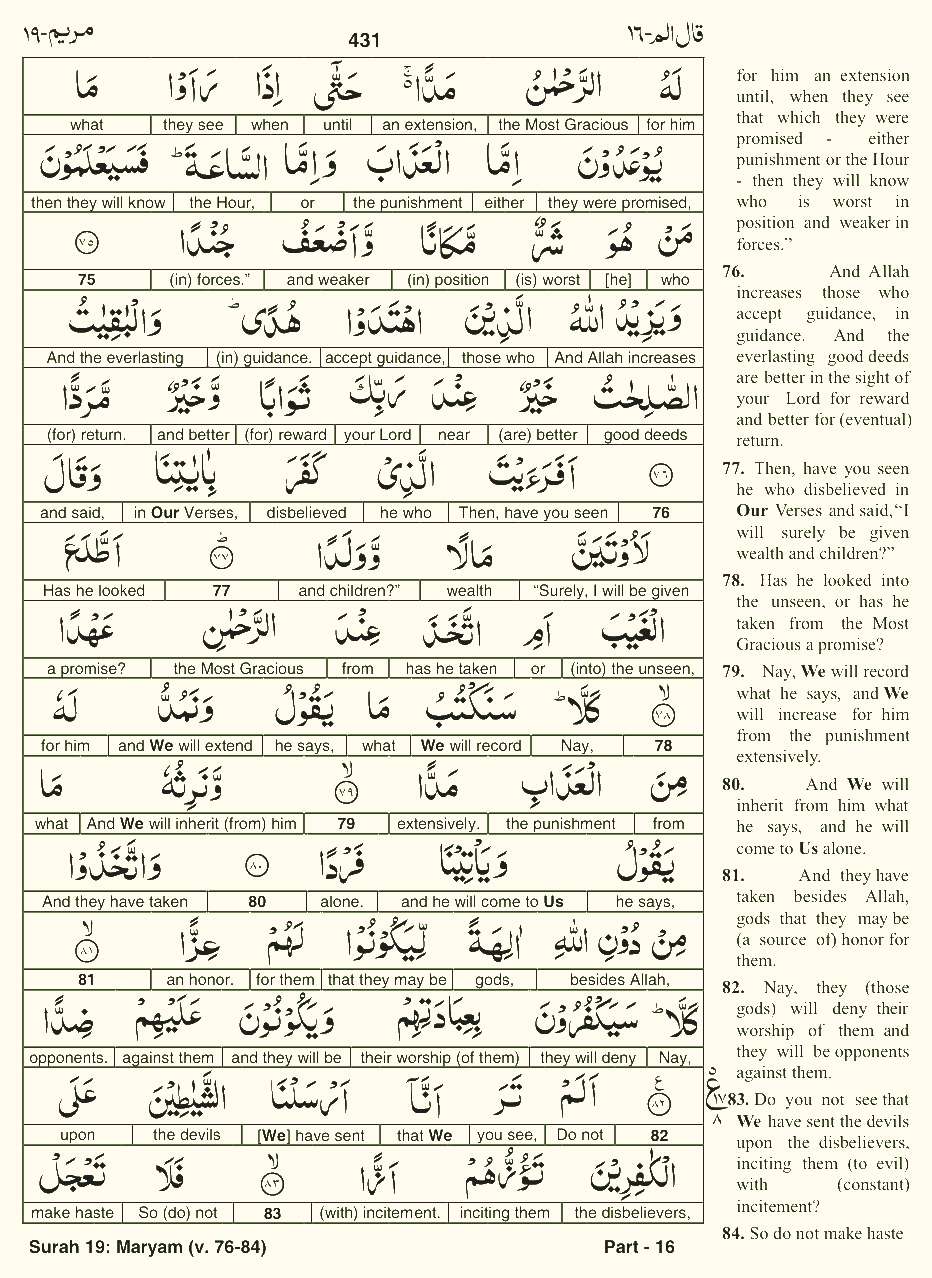 مريم-١٩
431
قال الم-١٦
لَهُ الرَّحْمٰنُ مَدًّا ۚ۬ حَتّٰٓى اِذَا رَاَوْا مَا
for him the Most Gracious an extension, until when they see what
يُوْعَدُوْنَ اِمَّا الْعَذَابَ وَاِمَّا السَّاعَةَ ؕ فَسَيَعْلَمُوْنَ
they were promised, either the punishment or the Hour, then they will know
مَنْ هُوَ شَرٌّ مَّكَانًا وَّاَضْعَفُ جُنْدًا ۝٧٥
who [he] (is) worst (in) position and weaker (in) forces.” 75
وَيَزِيْدُ اللّٰهُ الَّذِيْنَ اهْتَدَوْا هُدًى ؕ وَالْبٰقِيٰتُ
And Allah increases those who accept guidance, (in) guidance. And the everlasting
الصّٰلِحٰتُ خَيْرٌ عِنْدَ رَبِّكَ ثَوَابًا وَّخَيْرٌ مَّرَدًّا
good deeds (are) better near your Lord (for) reward and better (for) return.
۝٧٦ اَفَرَءَيْتَ الَّذِيْ كَفَرَ بِاٰيٰتِنَا وَقَالَ
76 Then, have you seen he who disbelieved in Our Verses, and said,
لَاُوْتَيَنَّ مَالًا وَّوَلَدًا ؕ ۝٧٧ اَطَّلَعَ
“Surely, I will be given wealth and children?” 77 Has he looked
الْغَيْبَ اَمِ اتَّخَذَ عِنْدَ الرَّحْمٰنِ عَهْدًا
(into) the unseen, or has he taken from the Most Gracious a promise?
۝٧٨ ۙ كَلَّا ؕ سَنَكْتُبُ مَا يَقُوْلُ وَنَمُدُّ لَهٗ
78 Nay, We will record what he says, and We will extend for him
مِنَ الْعَذَابِ مَدًّا ۙ ۝٧٩ وَّنَرِثُهٗ مَا
from the punishment extensively. 79 And We will inherit (from) him what
يَقُوْلُ وَيَاْتِيْنَا فَرْدًا ۝٨٠ وَاتَّخَذُوْا
he says, and he will come to Us alone. 80 And they have taken
مِنْ دُوْنِ اللّٰهِ اٰلِهَةً لِّيَكُوْنُوْا لَهُمْ عِزًّا ۙ ۝٨١
besides Allah, gods, that they may be for them an honor. 81
كَلَّا ؕ سَيَكْفُرُوْنَ بِعِبَادَتِهِمْ وَيَكُوْنُوْنَ عَلَيْهِمْ ضِدًّا
Nay, they will deny their worship (of them) and they will be against them opponents.
۝٨٢ ع اَلَمْ تَرَ اَنَّآ اَرْسَلْنَا الشَّيٰطِيْنَ عَلَى
82 Do not you see, that We [We] have sent the devils upon
الْكٰفِرِيْنَ تَؤُزُّهُمْ اَزًّا ۙ ۝٨٣ فَلَا تَعْجَلْ
the disbelievers, inciting them (with) incitement. 83 So (do) not make haste
ع ١٧ ٨
for him an extension
until, when they see
that which they were
promised - either
punishment or the Hour
- then they will know
who is worst in
position and weaker in
forces.”
76. And Allah
increases those who
accept guidance, in
guidance. And the
everlasting good deeds
are better in the sight of
your Lord for reward
and better for (eventual)
return.
77. Then, have you seen
he who disbelieved in
Our Verses and said,“I
will surely be given
wealth and children?”
78. Has he looked into
the unseen, or has he
taken from the Most
Gracious a promise?
79. Nay, We will record
what he says, and We
will increase for him
from the punishment
extensively.
80. And We will
inherit from him what
he says, and he will
come to Us alone.
81. And they have
taken besides Allah,
gods that they may be
(a source of) honor for
them.
82. Nay, they (those
gods) will deny their
worship of them and
they will be opponents
against them.
83. Do you not see that
We have sent the devils
upon the disbelievers,
inciting them (to evil)
with (constant)
incitement?
84. So do not make haste
Surah 19: Maryam (v. 76-84)
Part - 16